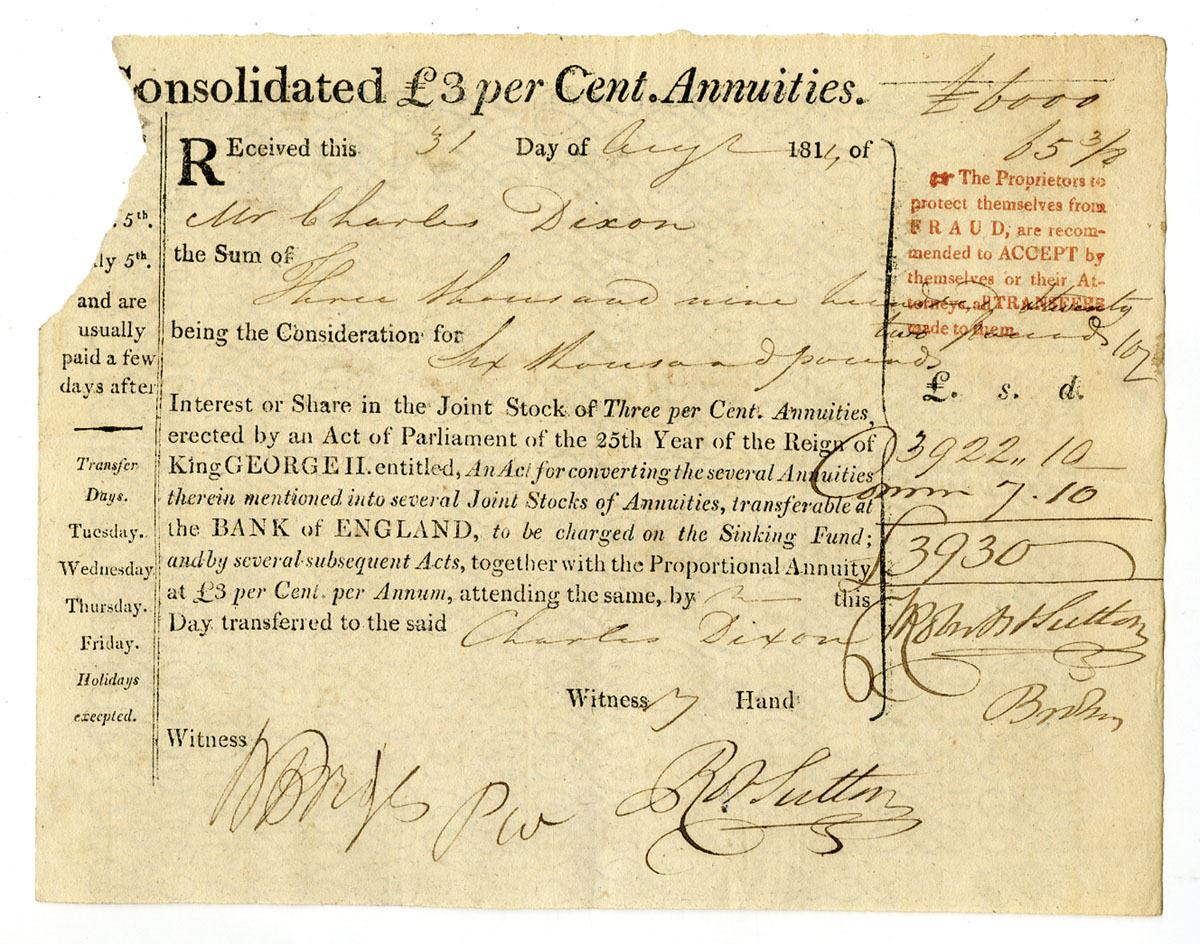 Consolidated £3 per Cent. Annuities.
£6000
65 3/8
REceived this 31 Day of Augt 1814, of
Mr Charles Dixon
the Sum of
Three thousand nine hundred & twenty
two Pounds 10/
being the Consideration for
Six thousand pounds
Interest or Share in the Joint Stock of Three per Cent. Annuities,
erected by an Act of Parliament of the 25th Year of the Reign of
King GEORGE II. entitled, An Act for converting the several Annuities
therein mentioned into several Joint Stocks of Annuities, transferable at
the BANK of ENGLAND, to be charged on the Sinking Fund;
and by several subsequent Acts, together with the Proportional Annuity
at £3 per Cent. per Annum, attending the same, by this
Day transferred to the said Charles Dixon
Witness my Hand
Witness
Rt Sutton
5th.
ly 5th.
and are
usually
paid a few
days after
Transfer
Days.
Tuesday.
Wednesday
Thursday.
Friday.
Holidays
excepted.
The Proprietors to
protect themselves from
FRAUD, are recom-
mended to ACCEPT by
themselves or their At-
torneys, all TRANSFERS
made to them.
£. s. d.
3922 ,, 10
Comm 7 . 10
3930
Robt Sutton
Broker